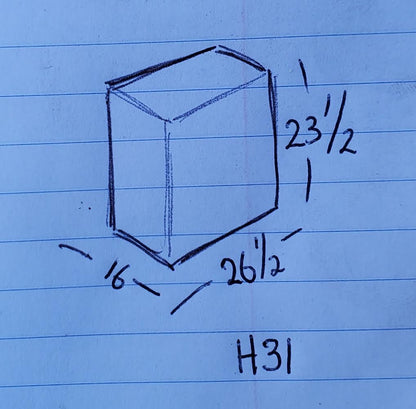 23 1/2
16
26 1/2
H31